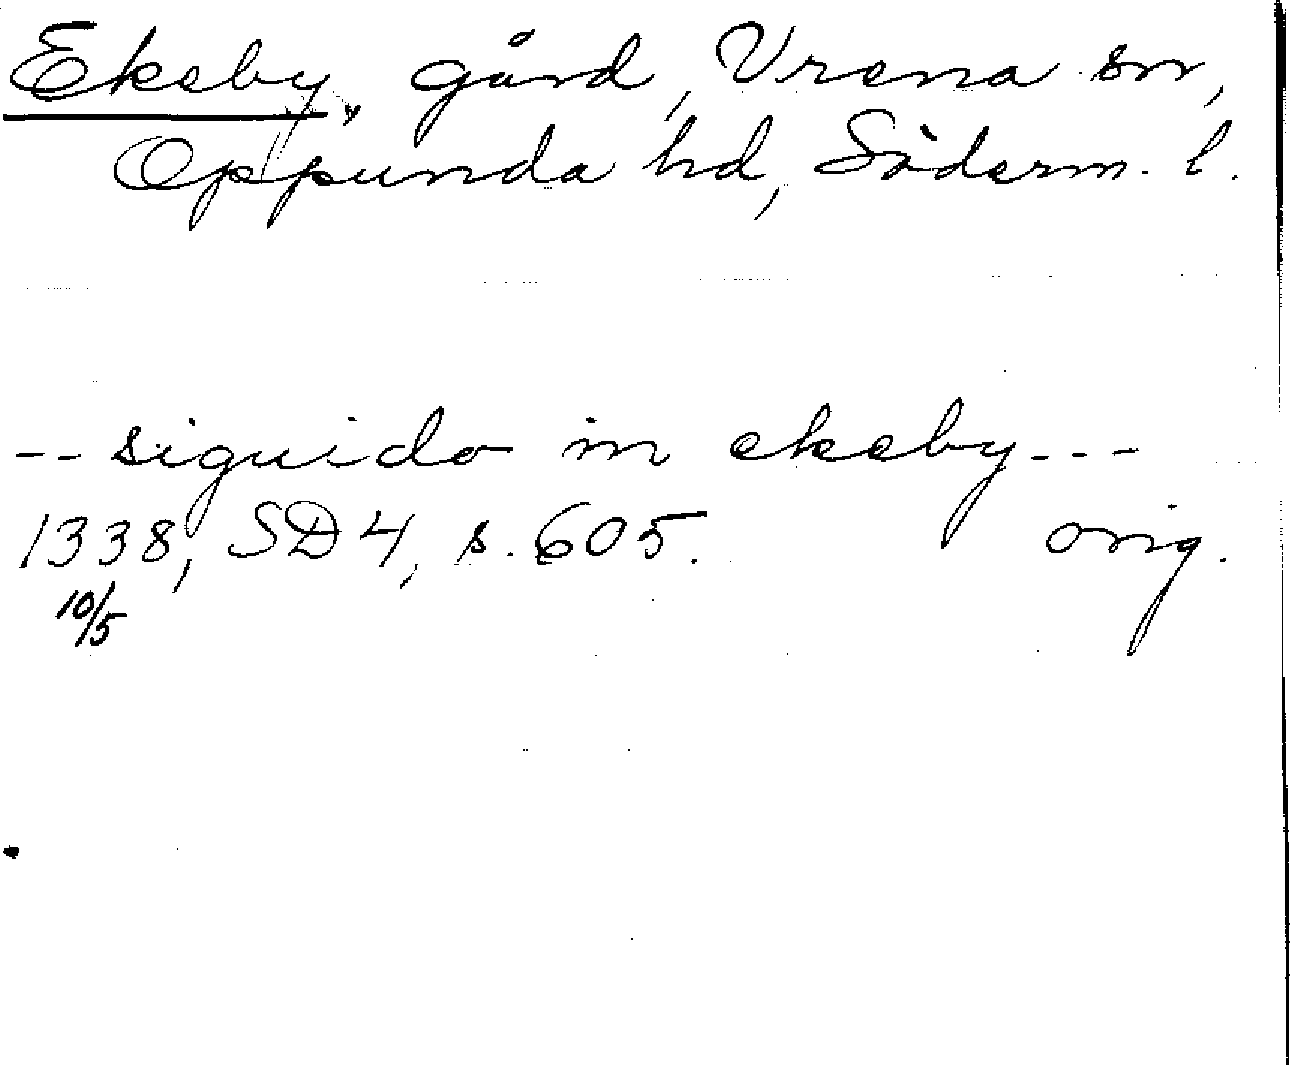 Ekeby, gård, Vrena sn,
Oppunda hd, Söderm. l.
-- siguido in ekeby ---
1338, SD 4, s. 605. orig.
10/5